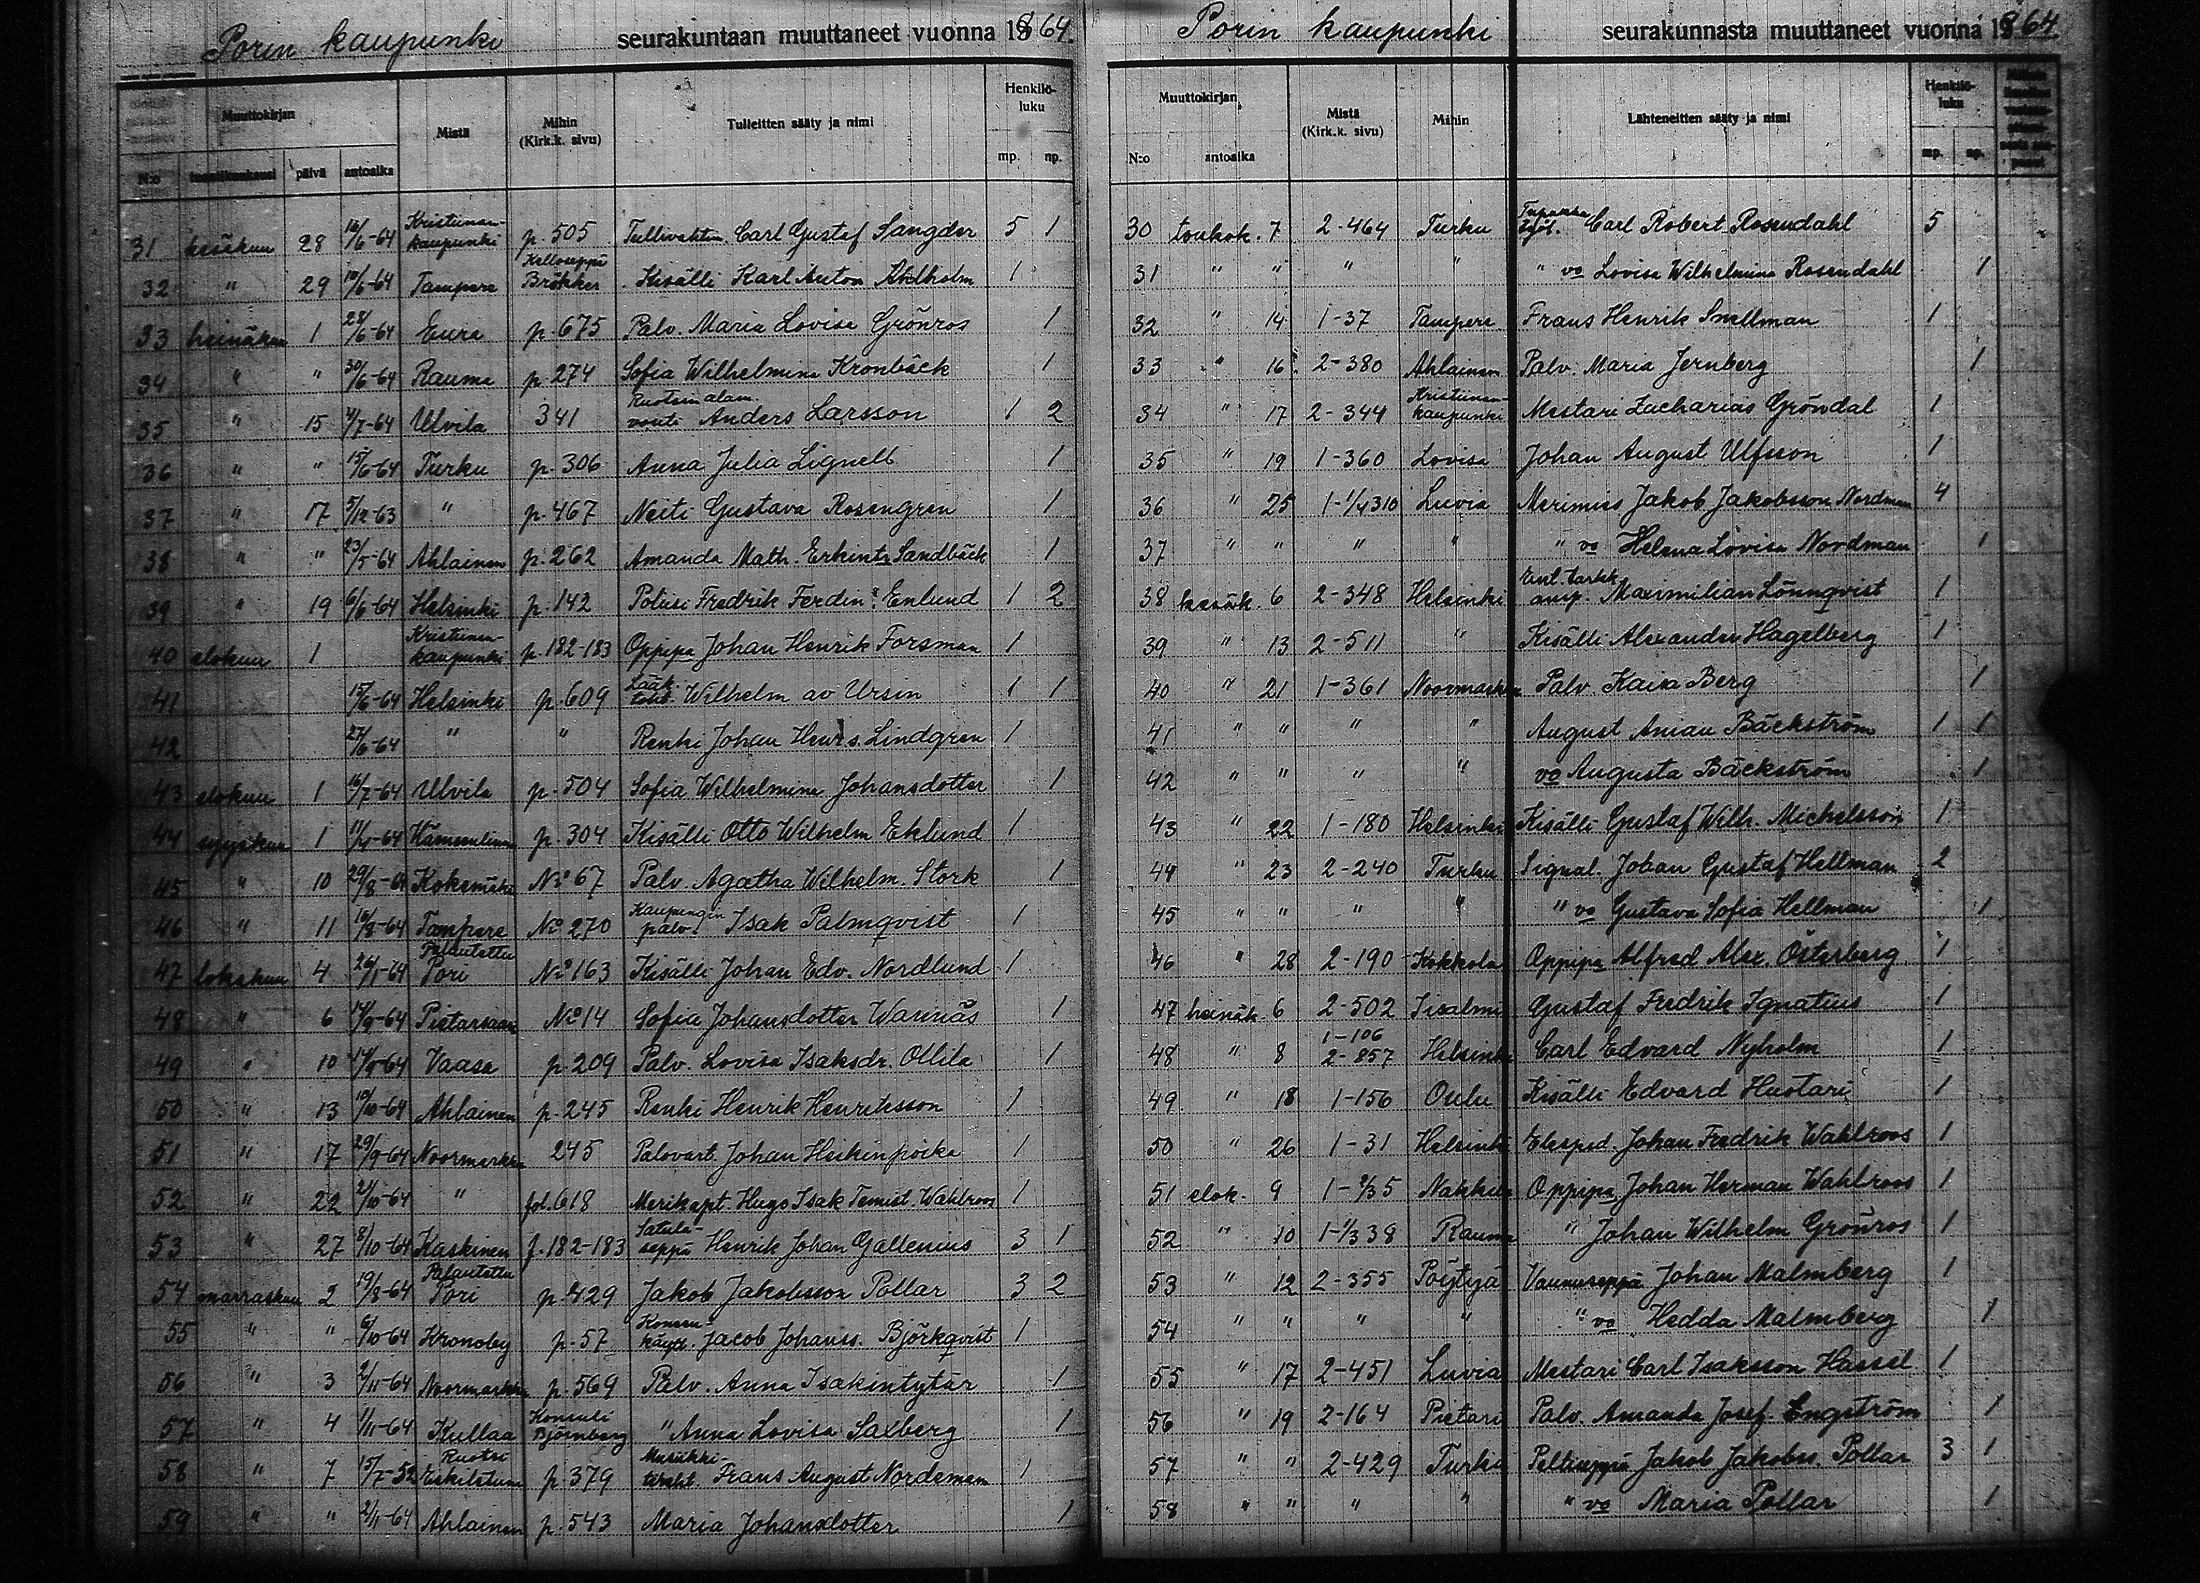 Porin kaupunki seurakuntaan muuttaneet vuonna 1864.
Muuttokirjan Mistä Mihin (Kirk.k. sivu) Tulleitten sääty ja nimi Henkilö-luku
N:o päivä antoaika mp. np.
31 kesäkuu 28 16/6-64 Kristiinan-kaupunki p. 505 Tullivahtm. Carl Gustaf Sangder 5 1
32 " 29 10/6-64 Tampere Kelloseppä Bröcker Kisälli Karl Anton Ahlholm 1
33 heinäkuu 1 28/6-64 Eura p. 675 Palv. Maria Lovisa Grönros 1
34 " " 30/6-64 Rauma p. 274 Sofia Wilhelmina Kronbäck 1
35 " 15 4/7-64 Ulvila 341 Ruotsin alam. vouti Anders Larsson 1 2
36 " " 15/6-64 Turku p. 306 Anna Julia Lignell 1
37 " 17 5/12-63 " p. 467 Neiti Gustava Rosengren 1
38 " " 23/5-64 Ahlainen p. 262 Amanda Math. Erkintr. Sandbäck 1
39 " 19 6/6-64 Helsinki p. 142 Poliisi Fredrik Ferdin. Enlund 1 2
40 elokuu 1 Kristiinan-kaupunki p. 182-183 Oppipa Johan Henrik Forsman 1
41 15/6-64 Helsinki p. 609 Lääk. toht. Wilhelm av Ursin 1 1
42 27/6-64 " " Renki Johan Henrs. Lindgren 1
43 elokuu 1 16/7-64 Ulvila p. 504 Sofia Wilhelmina Johansdotter 1
44 syyskuu 1 11/4-64 Hämeenlinna p. 304 Kisälli Otto Wilhelm Eklund 1
45 " 10 29/8-64 Kokemäki No 67 Palv. Agatha Wilhelm. Stork 1
46 " 11 16/8-64 Tampere No 270 Kaupungin palv. Isak Palmqvist 1
47 lokakuu 4 26/1-64 Palautettu Pori No 163 Kisälli Johan Edv. Nordlund 1
48 " 6 14/9-64 Pietarsaari No 14 Sofia Johansdotter Warinäs 1
49 " 10 Vaasa p. 209 Palv. Lovisa Isaksdr. Ollila 1
50 " 13 10/10-64 Ahlainen p. 245 Renki Henrik Henriksson 1
51 " 17 29/9-64 Noormarkku 245 Palovart. Johan Heikinpoika 1
52 " 22 21/10-64 " fol. 618 Merikapt. Hugo Isak Temist. Wahlroos 1
53 " 27 8/10-64 Kaskinen f. 182-183 Satula-seppä Henrik Johan Gallenius 3 1
54 marraskuu 2 19/8-64 Palautettu Pori p. 429 Jakob Jakobsson Pollar 3 2
55 " " 6/10-64 Kronoby p. 57 Jacob Johanss. Björkqvist 1
56 " 3 2/11-64 Noormarkku p. 569 Palv. Anna Isakintytär 1
57 " 4 1/11-64 Kullaa Konsuli Björnberg " Anna Lovisa Salberg 1
58 " 7 15/7-52 Ruotsi Eskilstuna p. 379 Musiikki- Frans August Nordeman 1
59 " " 2/11-64 Ahlainen p. 543 Maria Johansdotter 1
Porin kaupunki seurakunnasta muuttaneet vuonna 1864
Muuttokirjan Mistä (Kirk.k. sivu) Mihin Lähteneitten sääty ja nimi Henkilö-luku
N:o antoaika mp. np.
30 toukok. 7 2-464 Turku työl. Carl Robert Rosendahl 5
31 " " " " " vo Lovisa Wilhelmina Rosendahl 1
32 " 14 1-37 Tampere Frans Henrik Snellman 1
33 " 16 2-380 Ahlainen Palv. Maria Jernberg 1
34 " 17 2-344 Kristiinan-kaupunki Mestari Zacharias Gröndal 1
35 " 19 1-360 Lovisa Johan August Ulfsson 1
36 " 25 1-1/4310 Luvia Merimies Jakob Jakobsson Nordman 4
37 " " " " " vo Helena Lovisa Nordman 1
38 kesäk. 6 2-348 Helsinki Ent. tarkk. amp. Maximilian Lönnqvist 1
39 " 13 2-511 " Kisälli Alexander Hagelberg 1
40 " 21 1-361 Noormarkku Palv Kaisa Berg 1
41 " " " " August Anian Bäckström 1 1
42 " " " " vo Augusta Bäckström 1
43 " 22 1-180 Helsinki Kisälli Gustaf Wilh. Michelsson 1
44 " 23 2-240 Turku Signal. Johan Gustaf Hellman 2
45 " " " " " vo Gustava Sofia Hellman 1
46 " 28 2-190 Kokkola Oppipa Alfred Alex. Österberg 1
47 heinäk. 6 2-502 Iisalmi Gustaf Fredrik Ignatius 1
48 " 8 1-106 2-857 Helsinki Carl Edvard Nyholm 1
49 " 18 1-156 Oulu Kisälli Edvard Huotari 1
50 " 26 1-31 Helsinki Johan Fredrik Wahlroos 1
51 elok. 9 1-2/35 Nakkila Oppipa Johan Herman Wahlroos 1
52 " 10 1-1/338 Rauma " Johan Wilhelm Grönros 1
53 " 12 2-355 Pöytyä Vaunuseppä Johan Malmberg 1
54 " " " " " vo Hedda Malmberg 1
55 " 17 2-451 Luvia Mestari Carl Isaksson Hassel 1
56 " 19 2-164 Pietari Palv. Amanda Josef. Engström 1
57 " " 2-429 Turku Peltiseppä Jakob Jakobss. Pollar 3 1
58 " " " " " vo Maria Pollar 1